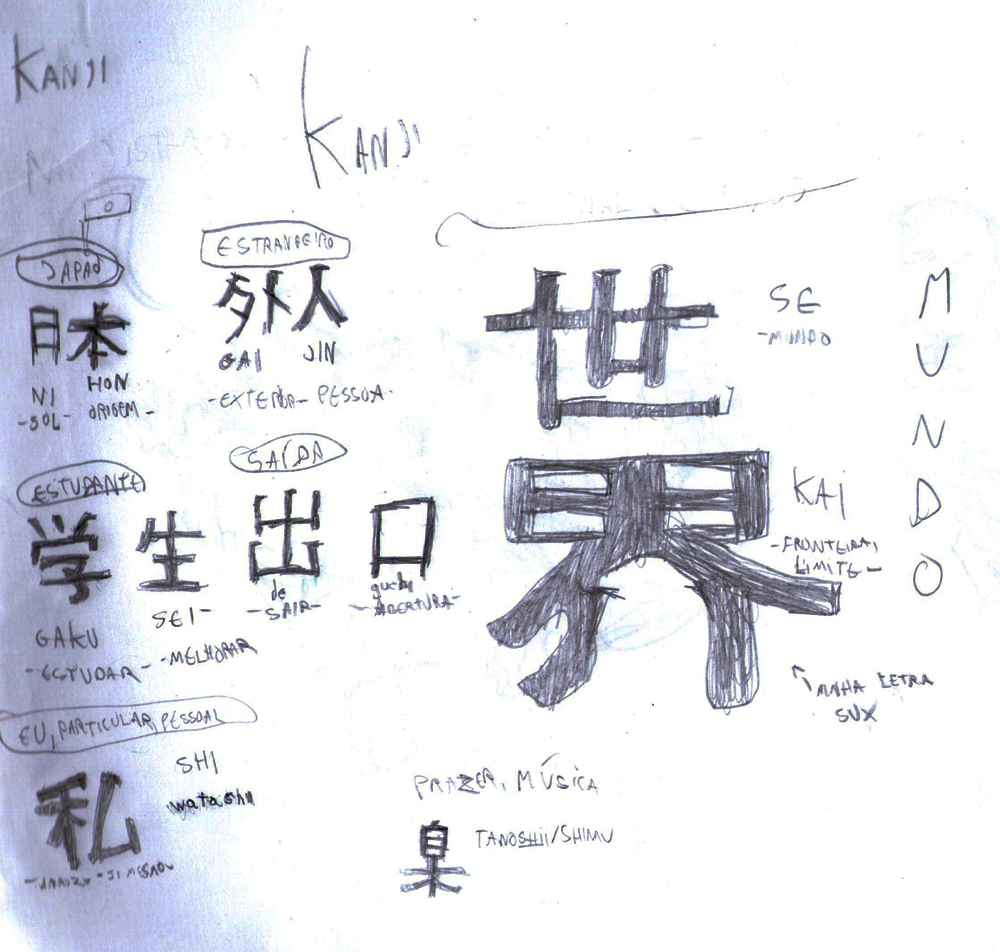 KANJI
KANJI
JAPAO
日本
NI HON
-SOL- ORIGEM-
ESTRANGEIRO
外人
GAI JIN
-EXTERIOR- PESSOA-
世
SE
-MUNDO
界
KAI
-FRONTEIRA,
LIMITE-
M
U
N
D
O
MINHA LETRA
SUX
ESTUDANTE
学生
GAKU SEI-
-ESTUDAR- -MELHORAR
SAÍDA
出口
de guchi
-SAIR- -ABERTURA-
EU, PARTICULAR, PESSOAL
私
SHI
watashi
PRAZER, MÚSICA
TANOSHII/SHIMU